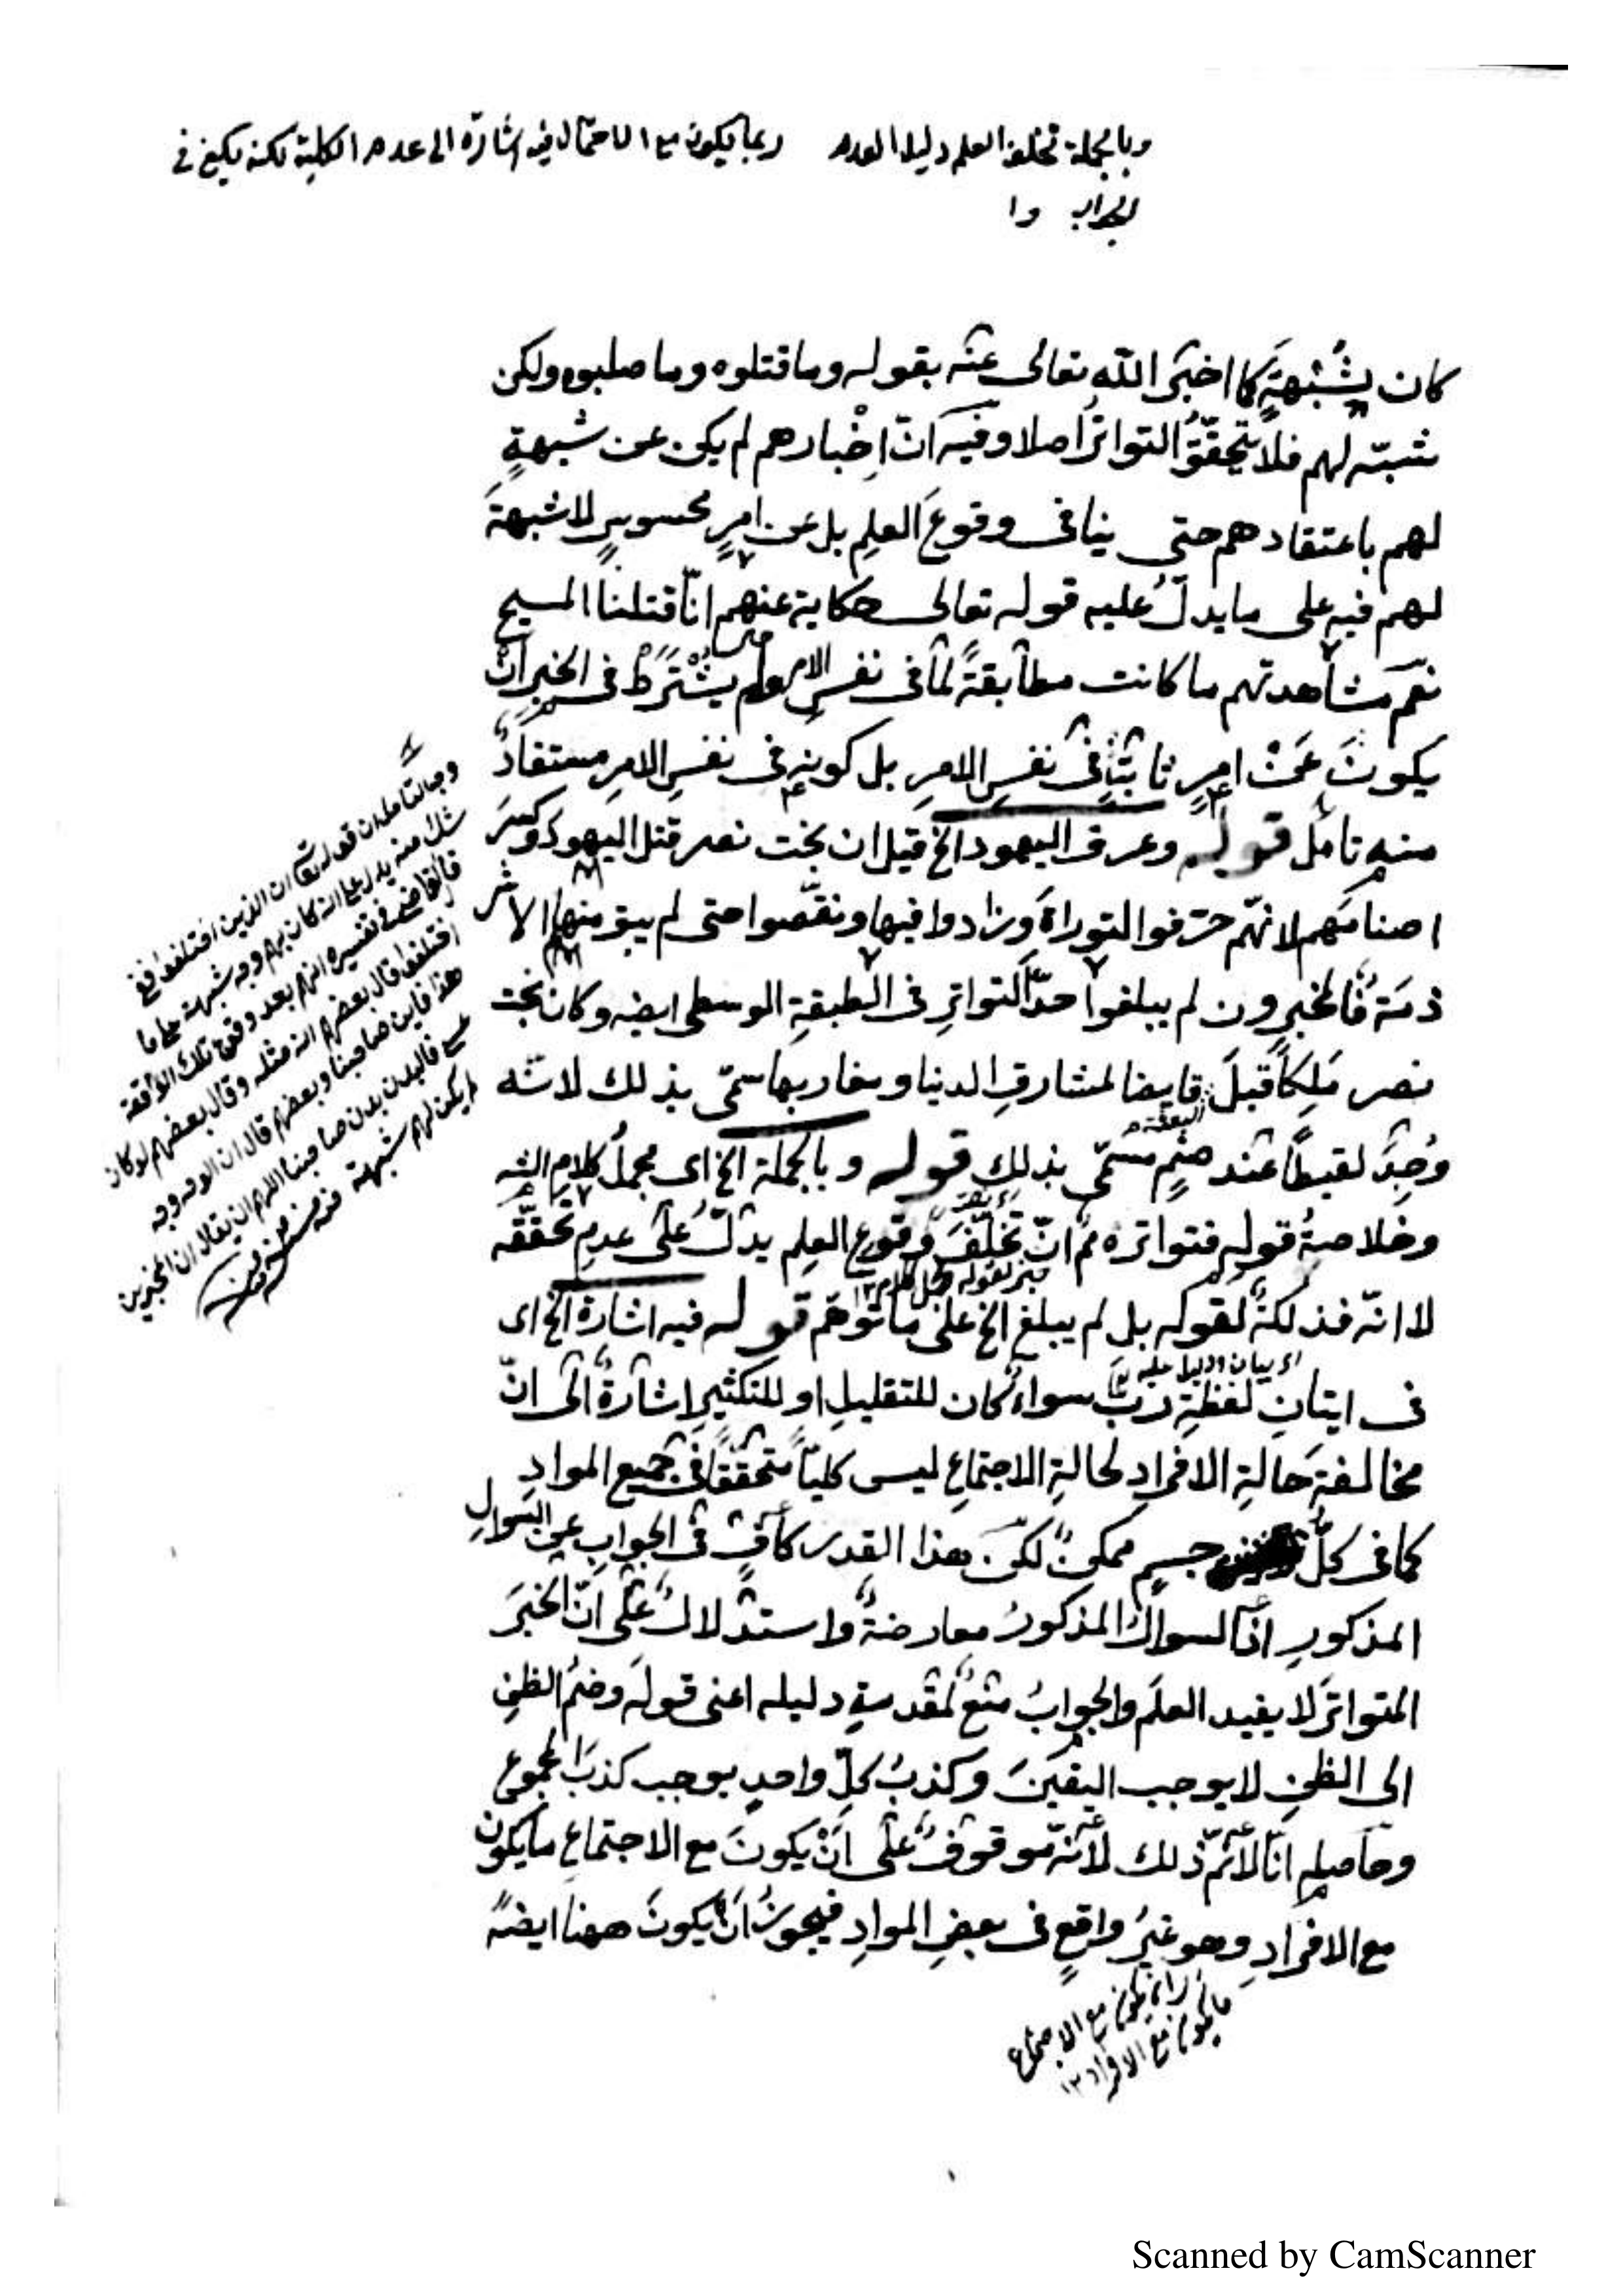 وبالجملة تخلف العلم دليل العدم ربما يكون مع الاحتمال فيه اشارة الى عدم الكلية لكنه يكفي في
الجواب
كان بِشُبْهةٍ كما اخبَر اللّٰه تعالى عنه بقوله وما قتلوه وما صلبوه ولكن
شبّه لهم فلا يتحقّقُ التواترُ اصلا وفيه انّ اِخْبارهم لم يكن عن شبهةٍ
لهم باعتقادهم حتى ينافى وقوعَ العلمِ بل عن امرٍ محسوسٍ لا شبهةَ
لهم فيه على ما يدلّ عليه قوله تعالى حكاية عنهم انّا قتلنا المسيح
نعم مشاهدتهم ما كانت مطابقةً لما فى نفسِ الامر ولم يشْتَرَطْ فى الخبر اَنْ
يكونَ عَنْ امرٍ ثابتٍ فى نفسِ الامرِ بل كونهِ فى نفسِ الامرِ مستفادٌ
منه تامل قوله وعرق اليهود الخ قيل ان بخت نصر قتل اليهود وكسرَ
اصنامَهم لانهّم حرّفوا التوراةَ وزادوا فيها ونقّصوا حتى لم يبق منها الا شر
ذمة فالمخبرون لم يبلغوا حدَّ التواترِ فى الطبقةِ الوسطى ايضه وكان بخت
نصر مَلِكاً قبلَ قابضا لمشارقِ الدنيا ومغاربها سمّى بذلك لانّه
وُجِدَ لقيطاً عند صنمٍ مسمّى بذلك قوله وبالجملة الخ اى مجملُ كلامِ الشه
وخلاصةُ قوله فتواتره مم انّ تخلّفَ وقوعِ العلمِ يدلّ على عدمِ تحققّه
خبر لقوله مجمل كلام ١٢
لا انّه فذلكةٌ لقوله بل لم يبلغ الخ على ما توهّم قوله فيه اشارة الخ اى
اى بيان ودليل عليه
فى ايتانِ لفظةِ ربَّ سواءٌ كان للتقليلِ او للتكثيرِ اشارةٌ الى انّ
مخالفةَ حالةِ الافرادِ لحالةِ الاجتماعِ ليس كليّاً متحققّاً فى جميع الموادِ
كما فى كلُّ جسمٍ ممكنٌ لكنّ هذا القدر كافٍ فى الجوابِ عن السوالِ
المذكورِ اذ السوالُ المذكورُ معارضةٌ واستدلالٌ على انّ الخبَرَ
المتواترَ لا يفيد العلمَ والجوابُ منعٌ لمقدمةِ دليله اعنى قولَه وضمُ الظنِ
الى الظنِ لا يوجب اليقينَ وكذبُ كلِّ واحدٍ يوجب كذبَ المجموعِ
وحاصله انّا لا نمّ ذلك لانّه موقوفٌ على اَنْ يكونَ مع الاجتماعِ ما يكون
مع الافرادِ وهو غيرُ واقعٍ فى بعضِ الموادِ فيجوزُ اَنْ يكونَ ههنا ايضهً
يكون مع الاجتماع
ما يكون مع الافراد ١٢
وجه التامل ان قوله تعا ان الذين اختلفوا فيه
شك منه يدل على انه كان لهم وجه شبهة على ما
قال القاضى فى تفسيره انهم بعد وقوع تلك الواقعة
اختلفوا قال بعضهم انه مثله وقال بعضهم لو كان
هذا فاين صاحبنا وبعضهم قال ان الوجه وجه
عيسى فالبدن بدن صاحبنا اللهم ان يقال ان المخبرين
لم يكن لهم شبهة
Scanned by CamScanner